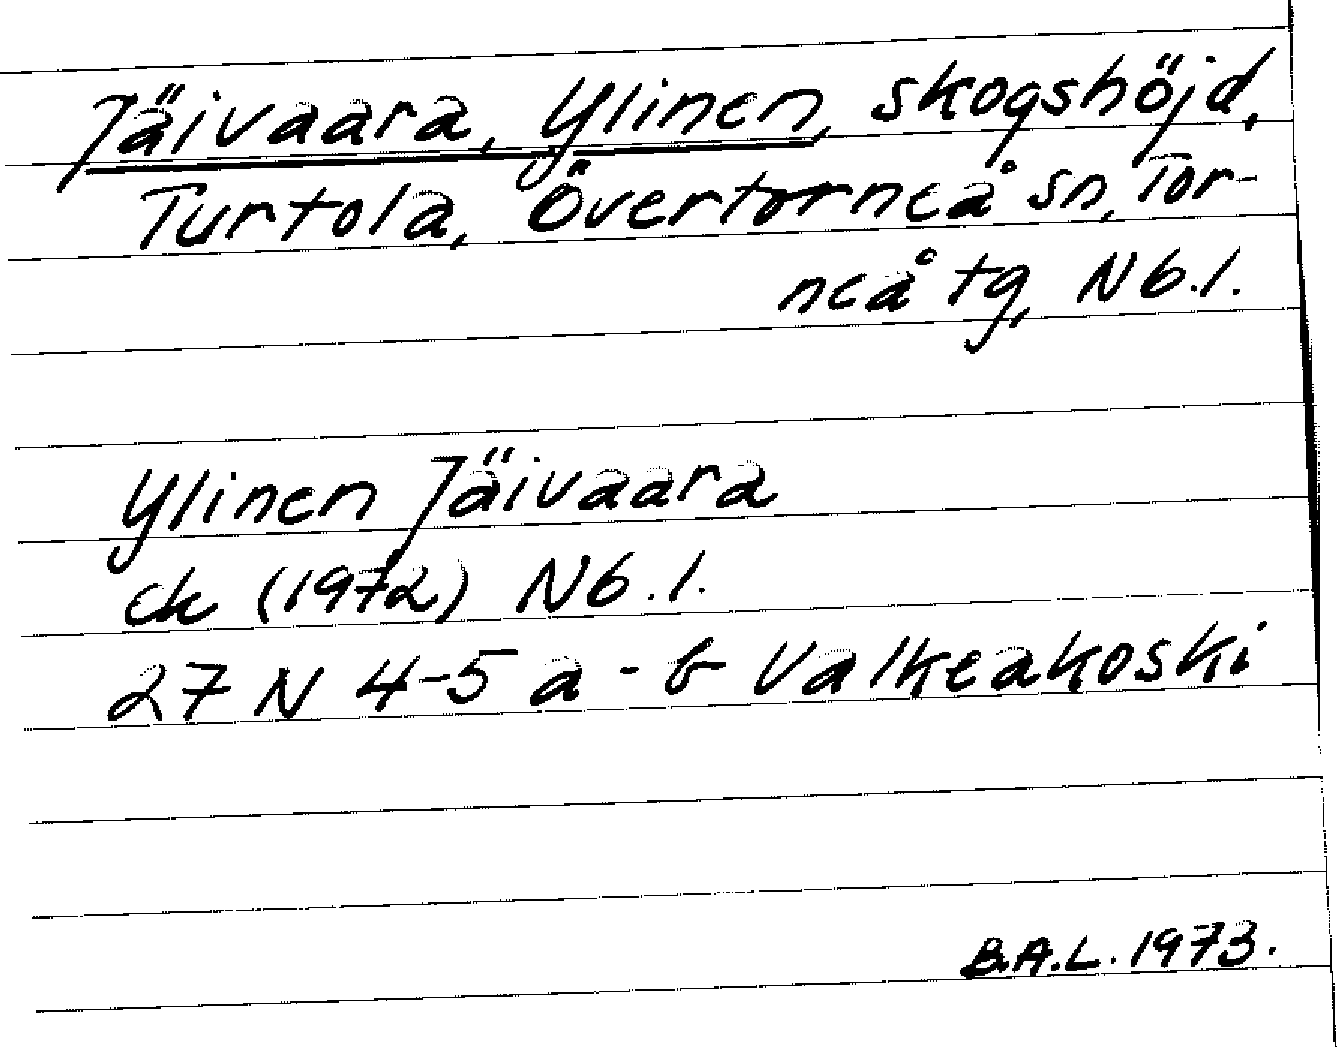 Jäivaara, Ylinen, skogshöjd,
Turtola, Övertorneå sn, Tor-
neå tg, Nb.l.
Ylinen Jäivaara
ek (1972) Nb.l.
27 N 4-5 a - b Valkeakoski
B.A.L. 1973.